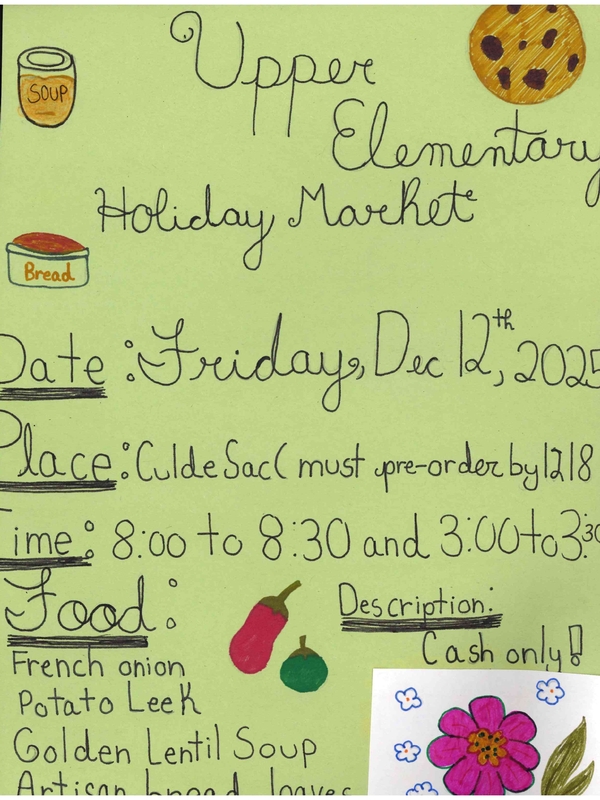 SOUP
Upper
Elementary
Holiday Market
Bread
Date: Friday, Dec 12th, 2025
Place: Culde Sac( must pre-order by 12/8
Time: 8:00 to 8:30 and 3:00 to 3:30
Food:
Description:
Cash only!
French onion
Potato Leek
Golden Lentil Soup
Artisan bread loaves